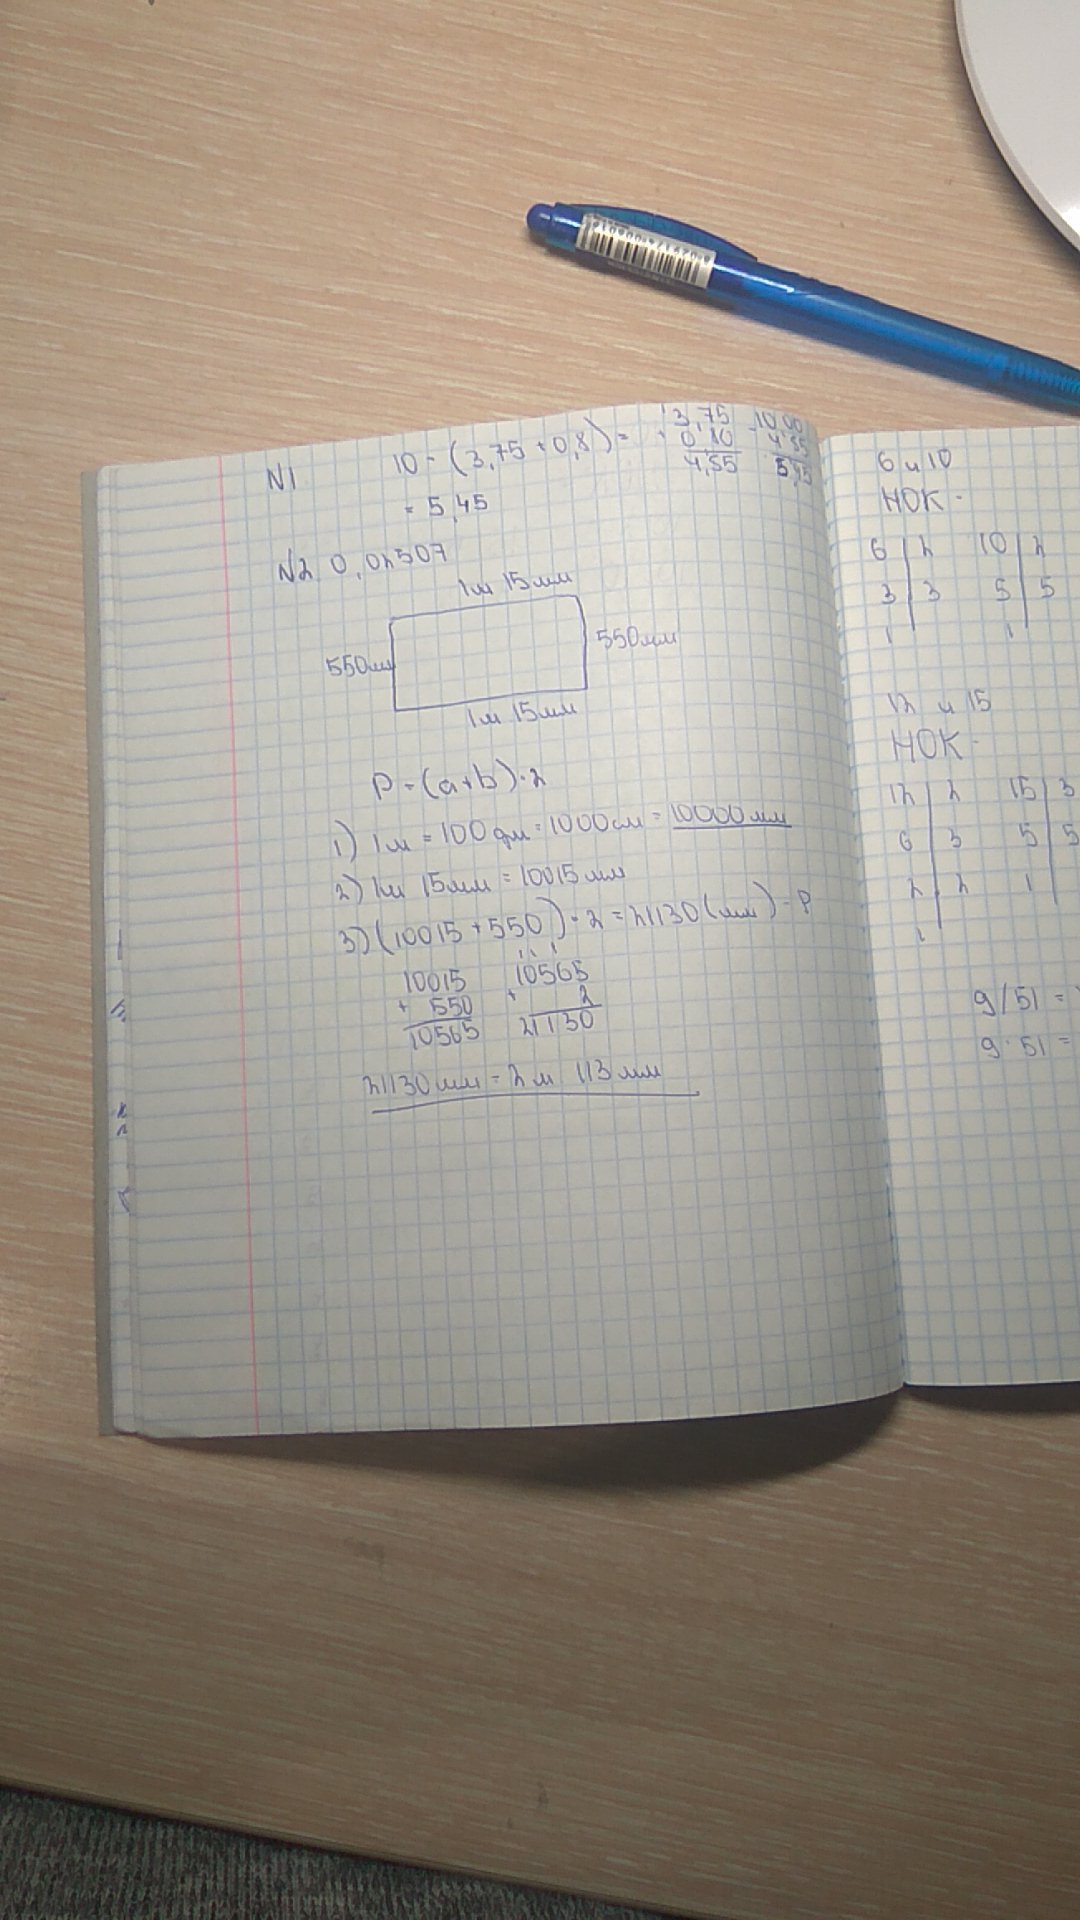 N1 10 - (3,75 + 0,8) =
= 5,45
3,75
+ 0,80
4,55
10,00
- 4,55
5,45
N2 0,02507
1м 15мм
550мм
550мм
1м 15мм
P = (a+b)·2
1) 1м = 100дм = 1000см = 10000мм
2) 1м 15мм = 10015мм
3) (10015 + 550) · 2 = 21130(мм) - P
10015
+ 550
10565
10565
× 2
21130
21130мм = 2м 113мм
6 и 10
НОК -
6 | 2 10 | 2
3 | 3 5 | 5
1 1
12 и 15
НОК -
12 | 2 15 | 3
6 | 3 5 | 5
2 | 2 1
1
9/51 =
9·51 =